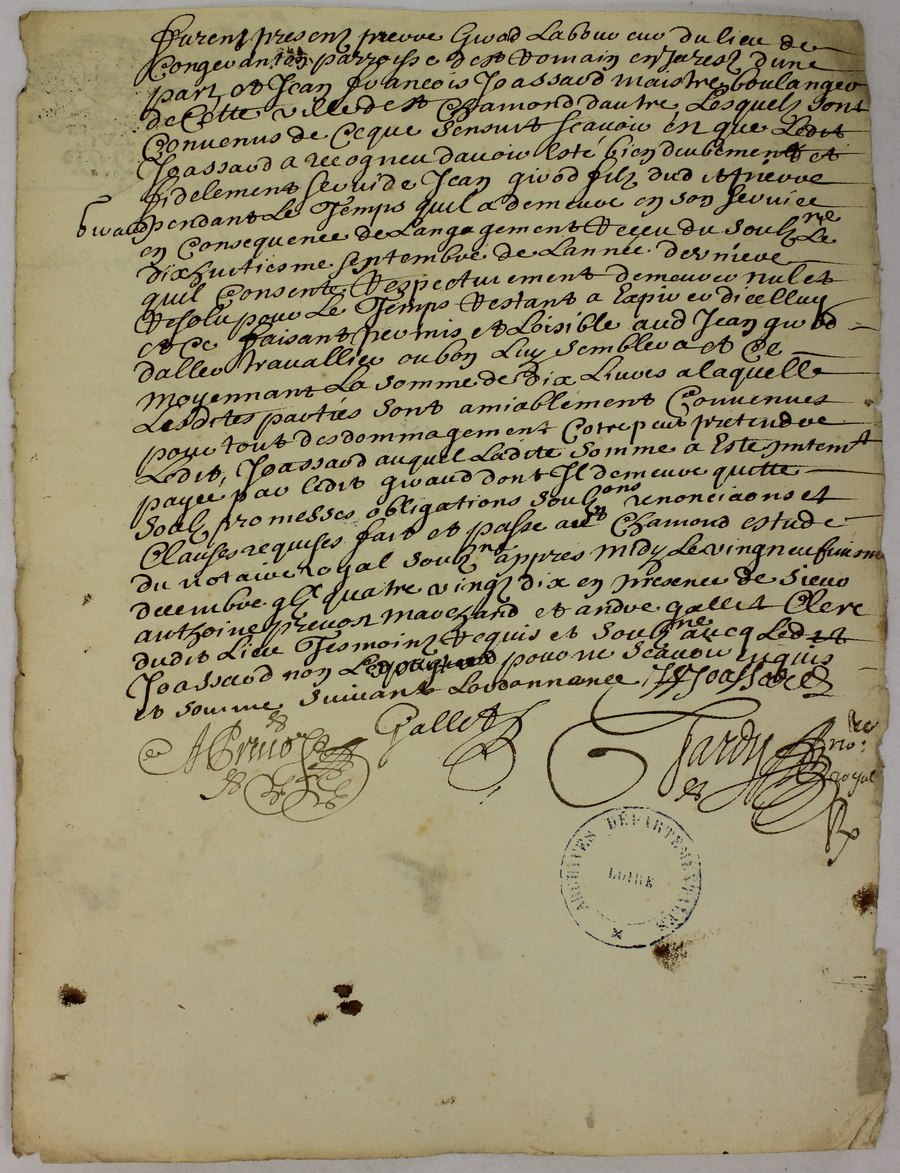 furent present pierre Girod Laboureur du lieu de
Congevan parroisse de st Romain en Jarest d'une
part et Jean francois Joassard maistre boulanger
de Cette ville de st Chamond dautre Lesquels sont
Convenus de Ceque sensuit scavoir en que Ledit
Joassard a recogneu davoir esté bien deubement et
fidelement servi de Jean girod filz dud it pierre
Giraud pendant Le Temps quil a demeuré en son service
en Consequence de Langagement Receu du soubzne Le
dixhuitiesme septembre de Lannée derniere
quil Consent Respectivement demeurer nul et
Resolu pour Le Temps Restant a Expirer dicelluy
et Ce faisant permis et Loisible aud Jean girod
daller travallier ou bon Luy semblera et Ce
moyennant La somme de dix Livres a laquelle
Lesdites parties sont amiablement Convenues
pour tout desdommagement Cotrepeut pretendre
Ledit Joassard auquel Ladite somme a Esté
payée par ledit giraud dont Il demeure quitte
soubz promesses obligations soubzons renonciaons et
Clauses requises fait et passé aud st Chamond estude
du notaire royal soubzne appres midy Le vingneufuiesme
decembre gbl quatre vingz dix en presence de sieur
anthoine prevost marchand et andre gallet Clerc
dudit Lieu Tesmoinz Requis et soubzne avecq Ledit
Joassard non Led giraud pour ne scavoir enquis
et sommé suivant Lordonnance JF Joassard
APrevost
Gallet
Tardy
nore
royal
ARCHIVES DÉPARTEMENTALES
LOIRE